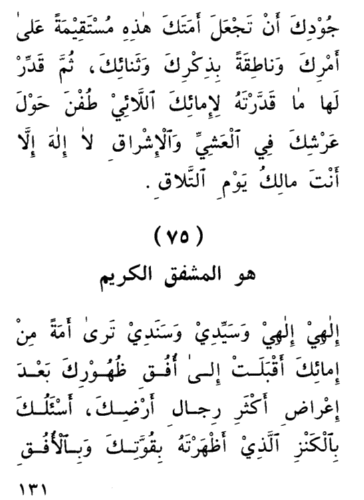 جُوْدِكَ أَنْ تَجْعَلَ أَمَتَكَ هٰذِهِ مُسْتَقِيْمَةً عَلىٰ
أَمْرِكَ وَنَاطِقَةً بِذِكْرِكَ وَثَنائِكَ، ثُمَّ قَدِّرْ
لَها مٰا قَدَّرْتَهُ لِإِمائِكَ اللَّائِيْ طُفْنَ حَوْلَ
عَرْشِكَ فِي ٱلْعَشِيِّ وَٱلْإِشْراقِ لاٰ إِلٰهَ إِلَّا
أَنْتَ مالِكُ يَوْمِ ٱلتَّلاقِ.
(٧٥)
هو المشفق الكريم
إِلٰهِيْ إِلٰهِيْ وَسَيِّدِيْ وَسَنَدِيْ تَرىٰ أَمَةً مِنْ
إِمائِكَ أَقْبَلَتْ إِلىٰ أُفُقِ ظُهُوْرِكَ بَعْدَ
إِعْراضِ أَكْثَرِ رِجالِ أَرْضِكَ، أَسْئَلُكَ
بِٱلْكَنْزِ ٱلَّذِيْ أَظْهَرْتَهُ بِقُوَّتِكَ وَبِٱلْأُفُقِ
١٣١